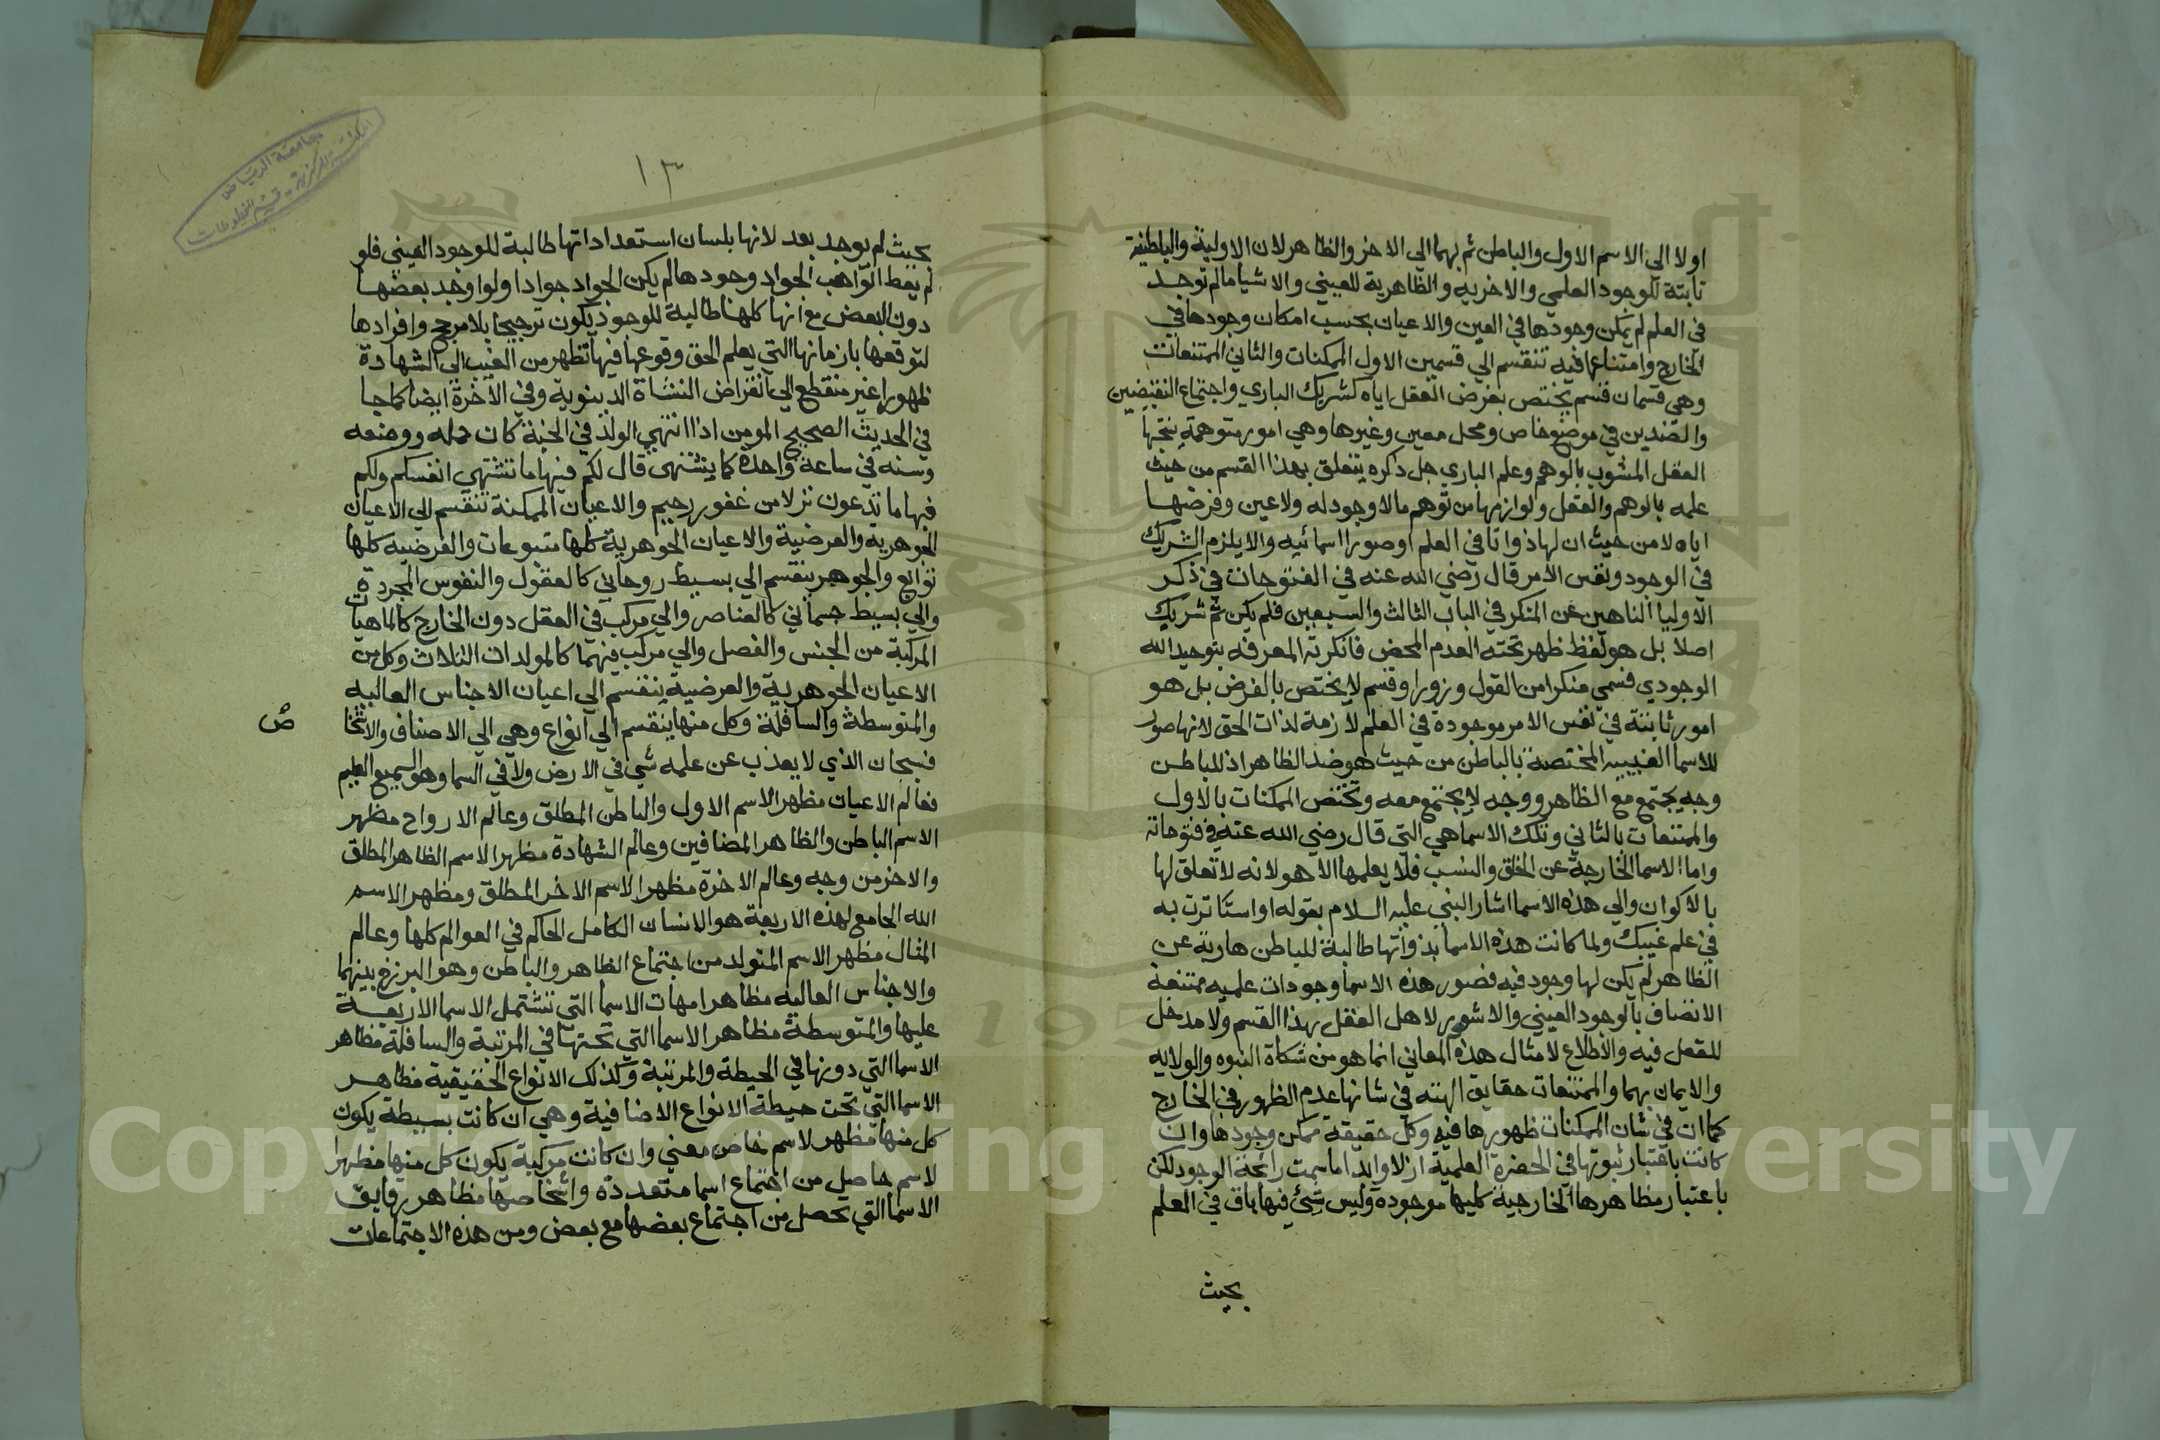 اولا الي الاسم الاول والباطن ثم بهما الي الاخر والظاهر لان الاولية والباطنية
ثابتة للوجود العلمي والاخرية والظاهرية للعيني والاشيا مالم توجد
في العلم لم يمكن وجودها في العين والاعيان بحسب امكان وجودها في
الخارج وامتناعها فيه تنقسم الي قسمين الاول الممكنات والثاني الممتنعات
وهي قسمان قسم يختص بفرض العقل اياه كشريك الباري واجتماع النقيضين
والضدين في موضوع خاص ومحل معين وغيرها وهي امور متوهمة ينتجها
العقل المشوب بالوهم وعلم الباري جل ذكره يتعلق بهذا القسم من حيث
علمه بالوهم والعقل ولوازمهما من توهم مالا وجود له ولا عين وفرضهما
اياه لا من حيث ان لها ذواتا في العلم او صورا اسمائيه والا يلزم الشريك
في الوجود ونفس الامر قال رضي الله عنه في الفتوحات في ذكر
الاوليا الناهين عن المنكر في الباب الثالث والسبعين فلم يكن ثم شريك
اصلا بل هو لفظ ظهر تحته العدم المحض فانكرته المعرفه بتوحيد الله
الوجودي فسمي منكرا من القول وزورا وقسم لا يختص بالفرض بل هو
امور ثابتة في نفس الامر موجودة في العلم لازمة لذات الحق لانها صور
للاسما الغيبيه المختصة بالباطن من حيث هو ضد الظاهر اذ للباطن
وجه يجتمع مع الظاهر ووجه لا يجتمع معه وتختص الممكنات بالاول
والممتنعات بالثاني وتلك الاسما هي التي قال رضي الله عنه في فتوحاته
واما الاسما الخارجة عن الخلق والنسب فلا يعلمها الا هو لانه لا تعلق لها
بالاكوان والي هذه الاسما اشار النبي عليه السلام بقوله او استاثرت به
في علم غيبك ولما كانت هذه الاسما بذواتها طالبة للباطن هاربة عن
الظاهر لم يكن لها وجود فيه فصور هذه الاسما وجودات علميه ممتنعة
الاتصاف بالوجود العيني ولا شعور لاهل العقل بهذا القسم ولا مدخل
للعقل فيه والاطلاع لامثال هذه المعاني انما هو من مشكاة النبوه والولايه
والايمان بهما والممتنعات حقايق الهيه في شانها عدم الظهور في الخارج
كما ان في شان الممكنات ظهورها فيه وكل حقيقة ممكن وجودها وان
كانت باعتبار ثبوتها في الحضرة العلمية ازلا وابدا ماسمت رائحة الوجود لكن
باعتبار مظاهرها الخارجية كليها موجوده وليس شئ فيها باق في العلم
بحيث
١٣
بحيث لم يوجد بعد لانها بلسان استعداداتها طالبة للوجود العيني فلو
لم يعط الواهب الجواد وجودها لم يكن الجواد جوادا ولو اوجد بعضها
دون البعض مع انها كلها طالبة للوجود يكون ترجيحا بلا مرجح وافرادها
لتوقعها بازمانها التي يعلم الحق وقوعها فيها تظهر من الغيب الي الشهادة
ظهورا غير منقطع الي انقراض النشاة الدينوية وفي الاخرة ايضا كما جا
في الحديث الصحيح المومن اذا انتهي الولد في الجنة كان حمله ووضعه
وسنه في ساعة واحدة كما يشتهي قال لكم فيها ما تشتهي انفسكم ولكم
فيها ما تدعون نزلا من غفور رحيم والاعيان الممكنة تنقسم الي الاعيان
الجوهرية والعرضية والاعيان الجوهرية كلها متبوعات والعرضيه كلها
توابع والجوهر ينقسم الي بسيط روحاني كالعقول والنفوس المجردة
والي بسيط جسماني كالعناصر والي مركب في العقل دون الخارج كالماهيات
المركبة من الجنس والفصل والي مركب فيهما كالمولدات الثلاث وكل من
الاعيان الجوهرية والعرضية ينقسم الي اعيان الاجناس العاليه
والمتوسطة والسافلة وكل منها ينقسم الي انواع وهي الي الاصناف والاشخا
ص
فسبحان الذي لا يعذب عن علمه شي في الارض ولا في السما وهو السميع العليم
فعالم الاعيان مظهر الاسم الاول والباطن المطلق وعالم الارواح مظهر
الاسم الباطن والظاهر المضافين وعالم الشهادة مظهر الاسم الظاهر المطلق
والاخر من وجه وعالم الاخرة مظهر الاسم الاخر المطلق ومظهر الاسم
الله الجامع لهذه الاربعة هو الانسان الكامل الحاكم في العوالم كلها وعالم
المثال مظهر الاسم المتولد من اجتماع الظاهر والباطن وهو البرزخ بينهما
والاجناس العاليه مظاهر امهات الاسما التي تشتمل الاسما الاربعة
عليها والمتوسطة مظاهر الاسما التي تحتها في المرتبة والسافلة مظاهر
الاسما التي دونها في الحيطة والمرتبة وكذلك الانواع الحقيقية مظاهر
الاسما التي تحت حيطة الانواع الاضافية وهي ان كانت بسيطة يكون
كل منها مظهر لاسم خاص معني وان كانت مركبة يكون كل منها مظهرا
لاسم حاصل من اجتماع اسما متعددة واشخاصها مظاهر رقايق
الاسما التي تحصل من اجتماع بعضها مع بعض ومن هذه الاجتماعات
جامعة الرياض
المكتبة المركزية - قسم المخطوطات
Copyright © King Saud University